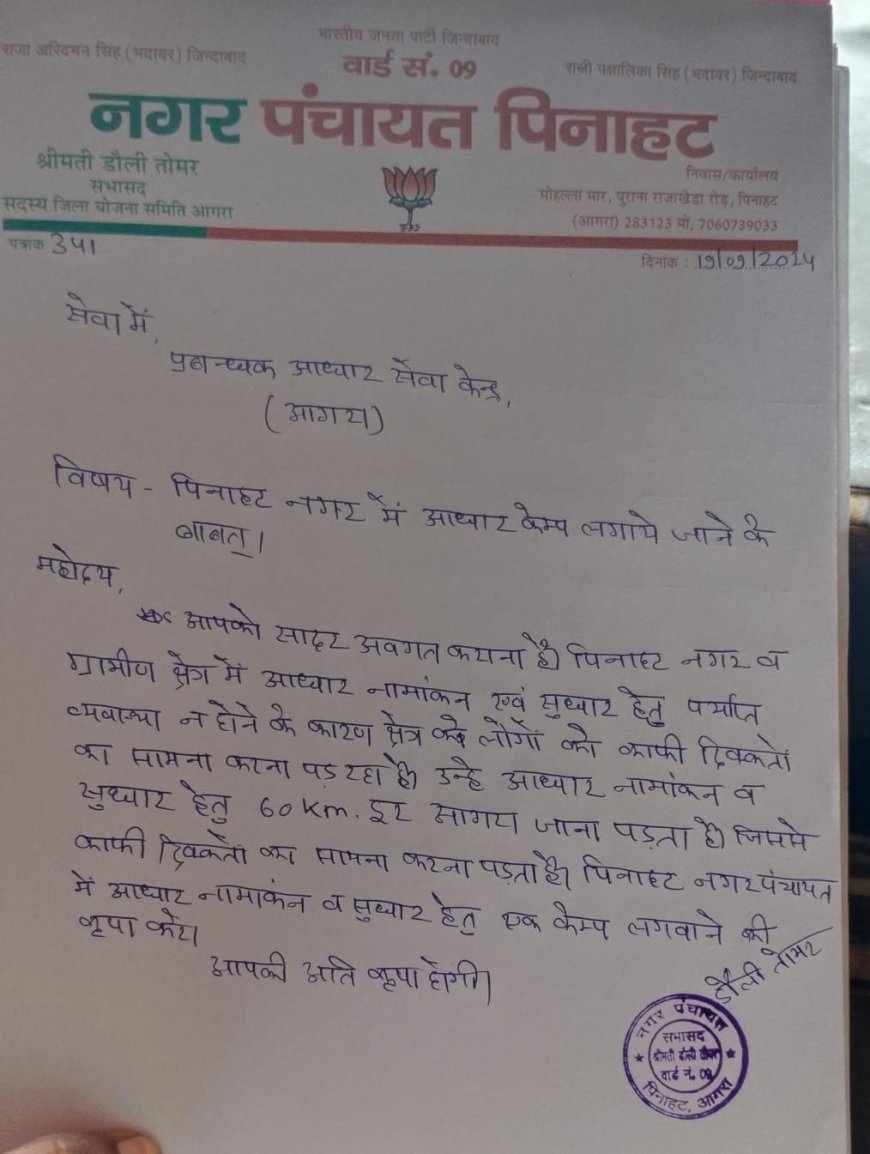 भारतीय जनता पार्टी जिन्दाबाद
राजा अरिदमन सिंह (भदावर) जिन्दाबाद
वार्ड सं. 09
रानी पक्षालिका सिंह (भदावर) जिन्दाबाद
नगर पंचायत पिनाहट
श्रीमती डौली तोमर
सभासद
सदस्य जिला योजना समिति आगरा
निवास/कार्यालय
मोहल्ला मार, पुराना राजाखेडा रोड़, पिनाहट
(आगरा) 283123 मो, 7060739033
पत्रांक 341
दिनांक : 19/09/2024
सेवा में,
प्रबन्धक आधार सेवा केन्द्र,
(आगरा)
विषय - पिनाहट नगर में आधार केम्प लगाये जाने के
बाबत्।
महोदय,
आपको सादर अवगत कराना है। पिनाहट नगर व
ग्रामीण क्षेत्र में आधार नामांकन एवं सुधार हेतु पर्याप्त
व्यवास्था न होने के कारण क्षेत्र के लोगों को काफी दिक्कतो
का सामना करना पड़ रहा है। उन्हे आधार नामांकन व
सुधार हेतु 60 Km. दूर आगरा जाना पड़ता है। जिससे
काफी दिक्कतों का सामना करना पड़ता है। पिनाहट नगर पंचायत
में आधार नामाकंन व सुधार हेतु एक केम्प लगवाने की
कृपा करे।
आपकी अति कृपा होगी।
डौली तोमर
नगर पंचायत
सभासद
श्रीमती डौली तोमर
वार्ड नं. 09
पिनाहट, आगरा